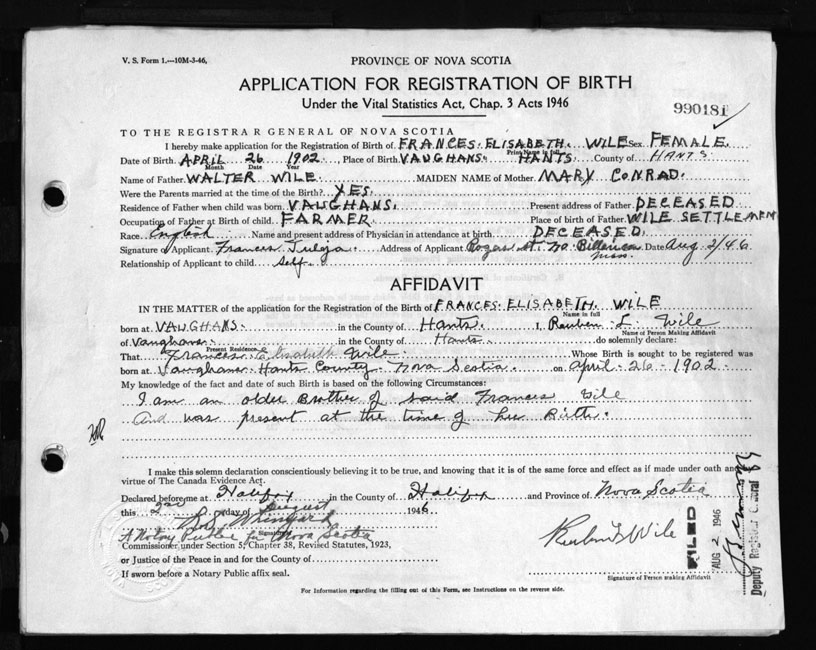 V. S. Form 1.—10M-3-46,
PROVINCE OF NOVA SCOTIA
APPLICATION FOR REGISTRATION OF BIRTH
Under the Vital Statistics Act, Chap. 3 Acts 1946
990181
TO THE REGISTRAR GENERAL OF NOVA SCOTIA
I hereby make application for the Registration of Birth of FRANCES. ELISABETH. WILE Sex FEMALE.
Print Name in full
Date of Birth. APRIL 26 1902 Place of Birth. VAUGHANS. HANTS County of HANTS
Month Date Year
Name of Father WALTER WILE MAIDEN NAME of Mother MARY CONRAD.
Were the Parents married at the time of the Birth? YES.
Residence of Father when child was born VAUGHANS. Present address of Father DECEASED
Occupation of Father at Birth of child. FARMER. Place of birth of Father WILE SETTLEMEN
Race English Name and present address of Physician in attendance at birth DECEASED.
Signature of Applicant. Frances Address of Applicant No. Billerica Date Aug 2/46
Mass.
Relationship of Applicant to child self.
AFFIDAVIT
IN THE MATTER of the application for the Registration of the Birth of FRANCES. ELISABETH. WILE
Name in full
born at VAUGHANS. in the County of Hants. I, Reuben L. Wile
Name of Person Making Affidavit
of Vaughans in the County of Hants. do solemnly declare:
Present Residence
That Frances Elisabeth Wile. Whose Birth is sought to be registered was
born at Vaughans Hants County Nova Scotia. on April - 26 - 1902.
My knowledge of the fact and date of such Birth is based on the following Circumstances:
I am an older Brother of said Frances Wile
And was present at the time of her Birth.
I make this solemn declaration conscientiously believing it to be true, and knowing that it is of the same force and effect as if made under oath and
virtue of The Canada Evidence Act.
Declared before me at Halifax in the County of Halifax and Province of Nova Scotia
this 2nd day of August 1946
Signature
A Notary Public for Nova Scotia
Commissioner under Section 5, Chapter 38, Revised Statutes, 1923,
or Justice of the Peace in and for the County of
If sworn before a Notary Public affix seal.
Reuben L Wile
Signature of Person making Affidavit
FILED
AUG 2 1946
Deputy Registrar General
For Information regarding the filling out of this Form, see Instructions on the reverse side.